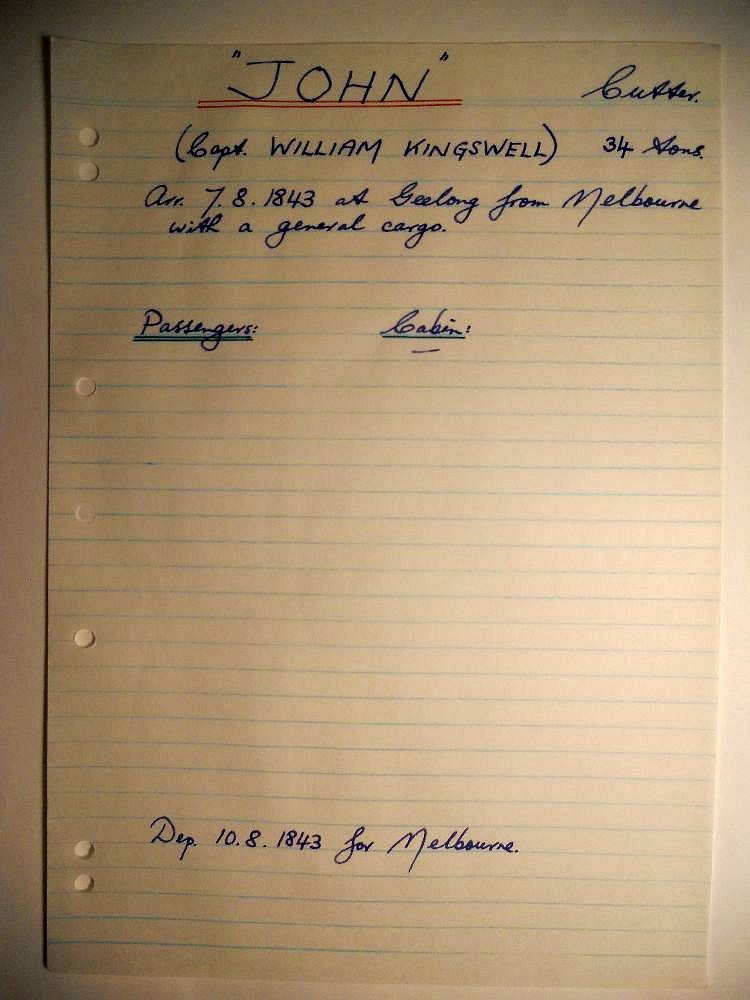 "JOHN" Cutter.
(Capt. WILLIAM KINGSWELL) 34 tons.
Arr. 7.8.1843 at Geelong from Melbourne
with a general cargo.
Passengers: Cabin:
—
Dep. 10.8.1843 for Melbourne.